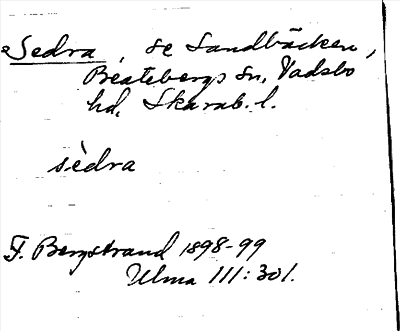 Sedra, se Sandbäcken,
Beatebergs sn, Vadsbo
hd, Skarab. l.
sèdra
F. Bergstrand 1898-99
Ulma 111:301.